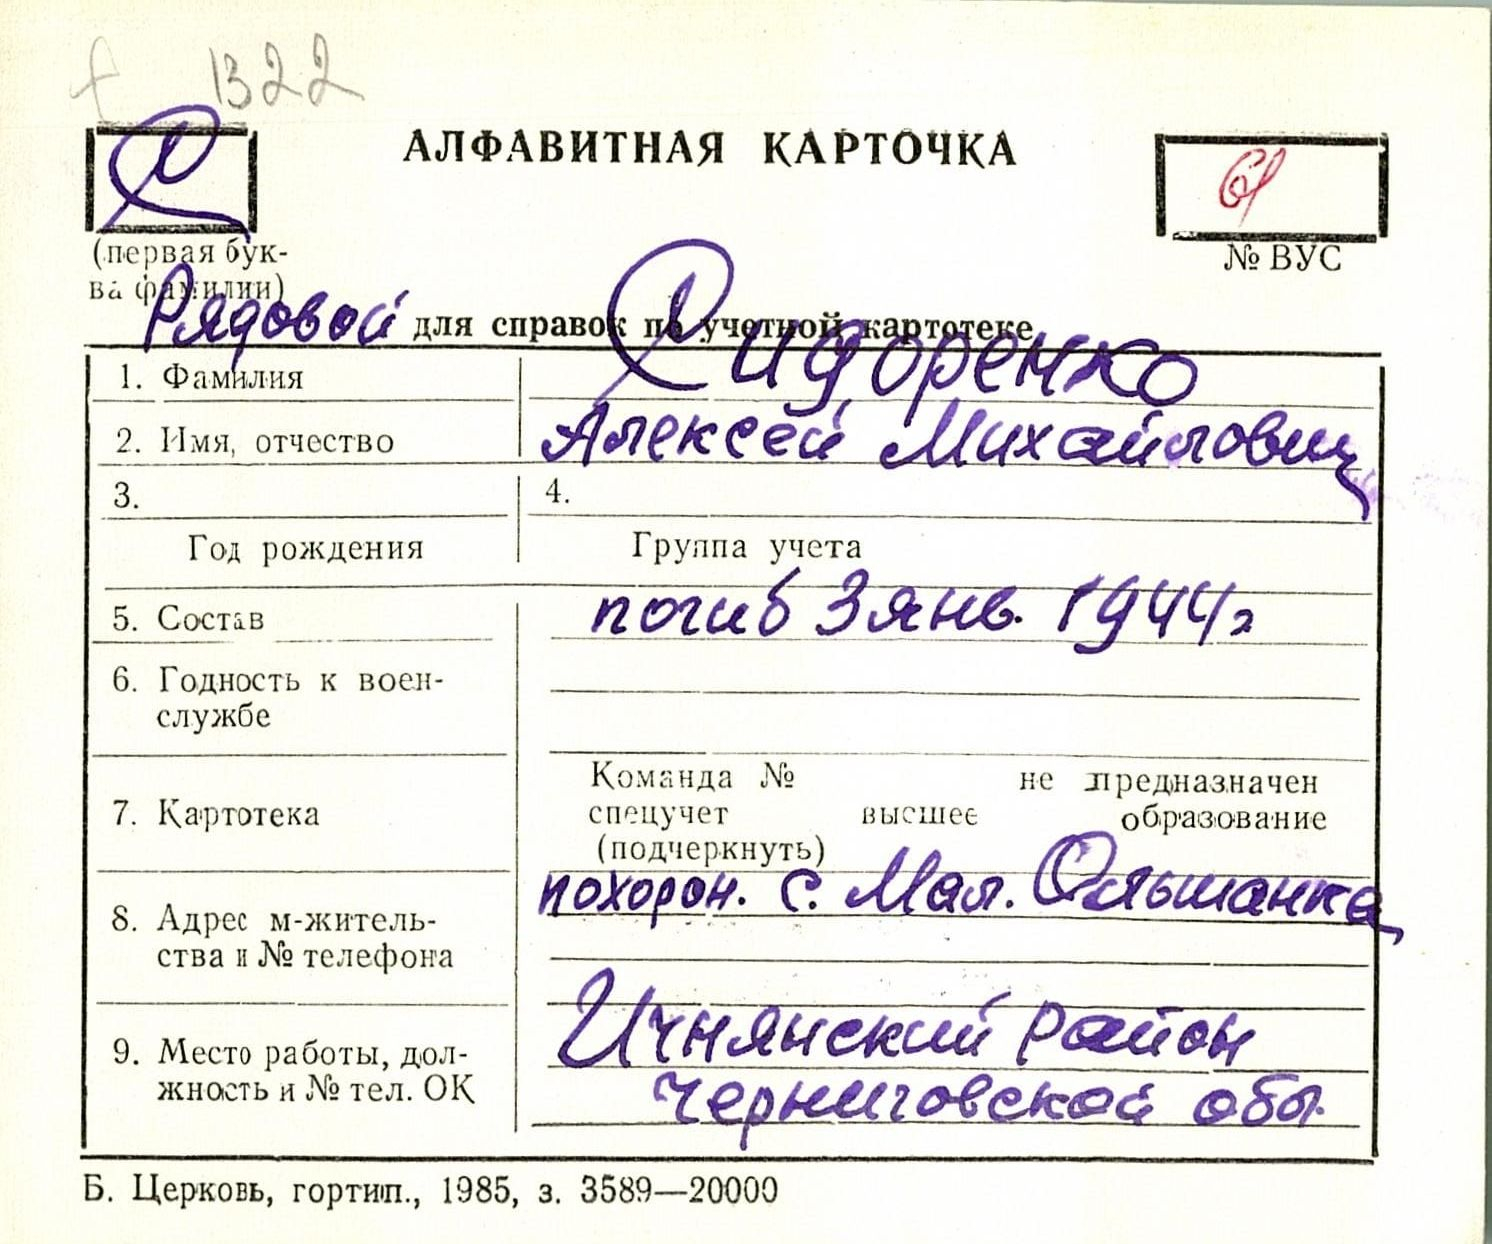 1322
С
АЛФАВИТНАЯ КАРТОЧКА
61
(первая бук-
ва фамилии)
№ ВУС
Рядовой для справок по учетной картотеке
1. Фамилия Сидоренко
2. Имя, отчество Алексей Михайлович
3. 4.
Год рождения Группа учета
5. Состав погиб 3 янв. 1944 г
6. Годность к воен-
службе
Команда № не предназначен
7. Картотека спецучет высшее образование
(подчеркнуть)
похорон. с. Мал. Ольшанка
8. Адрес м-житель-
ства и № телефона
Ичнянский район
9. Место работы, дол-
жность и № тел. ОК
Черниговской обл.
Б. Церковь, гортип., 1985, з. 3589—20000